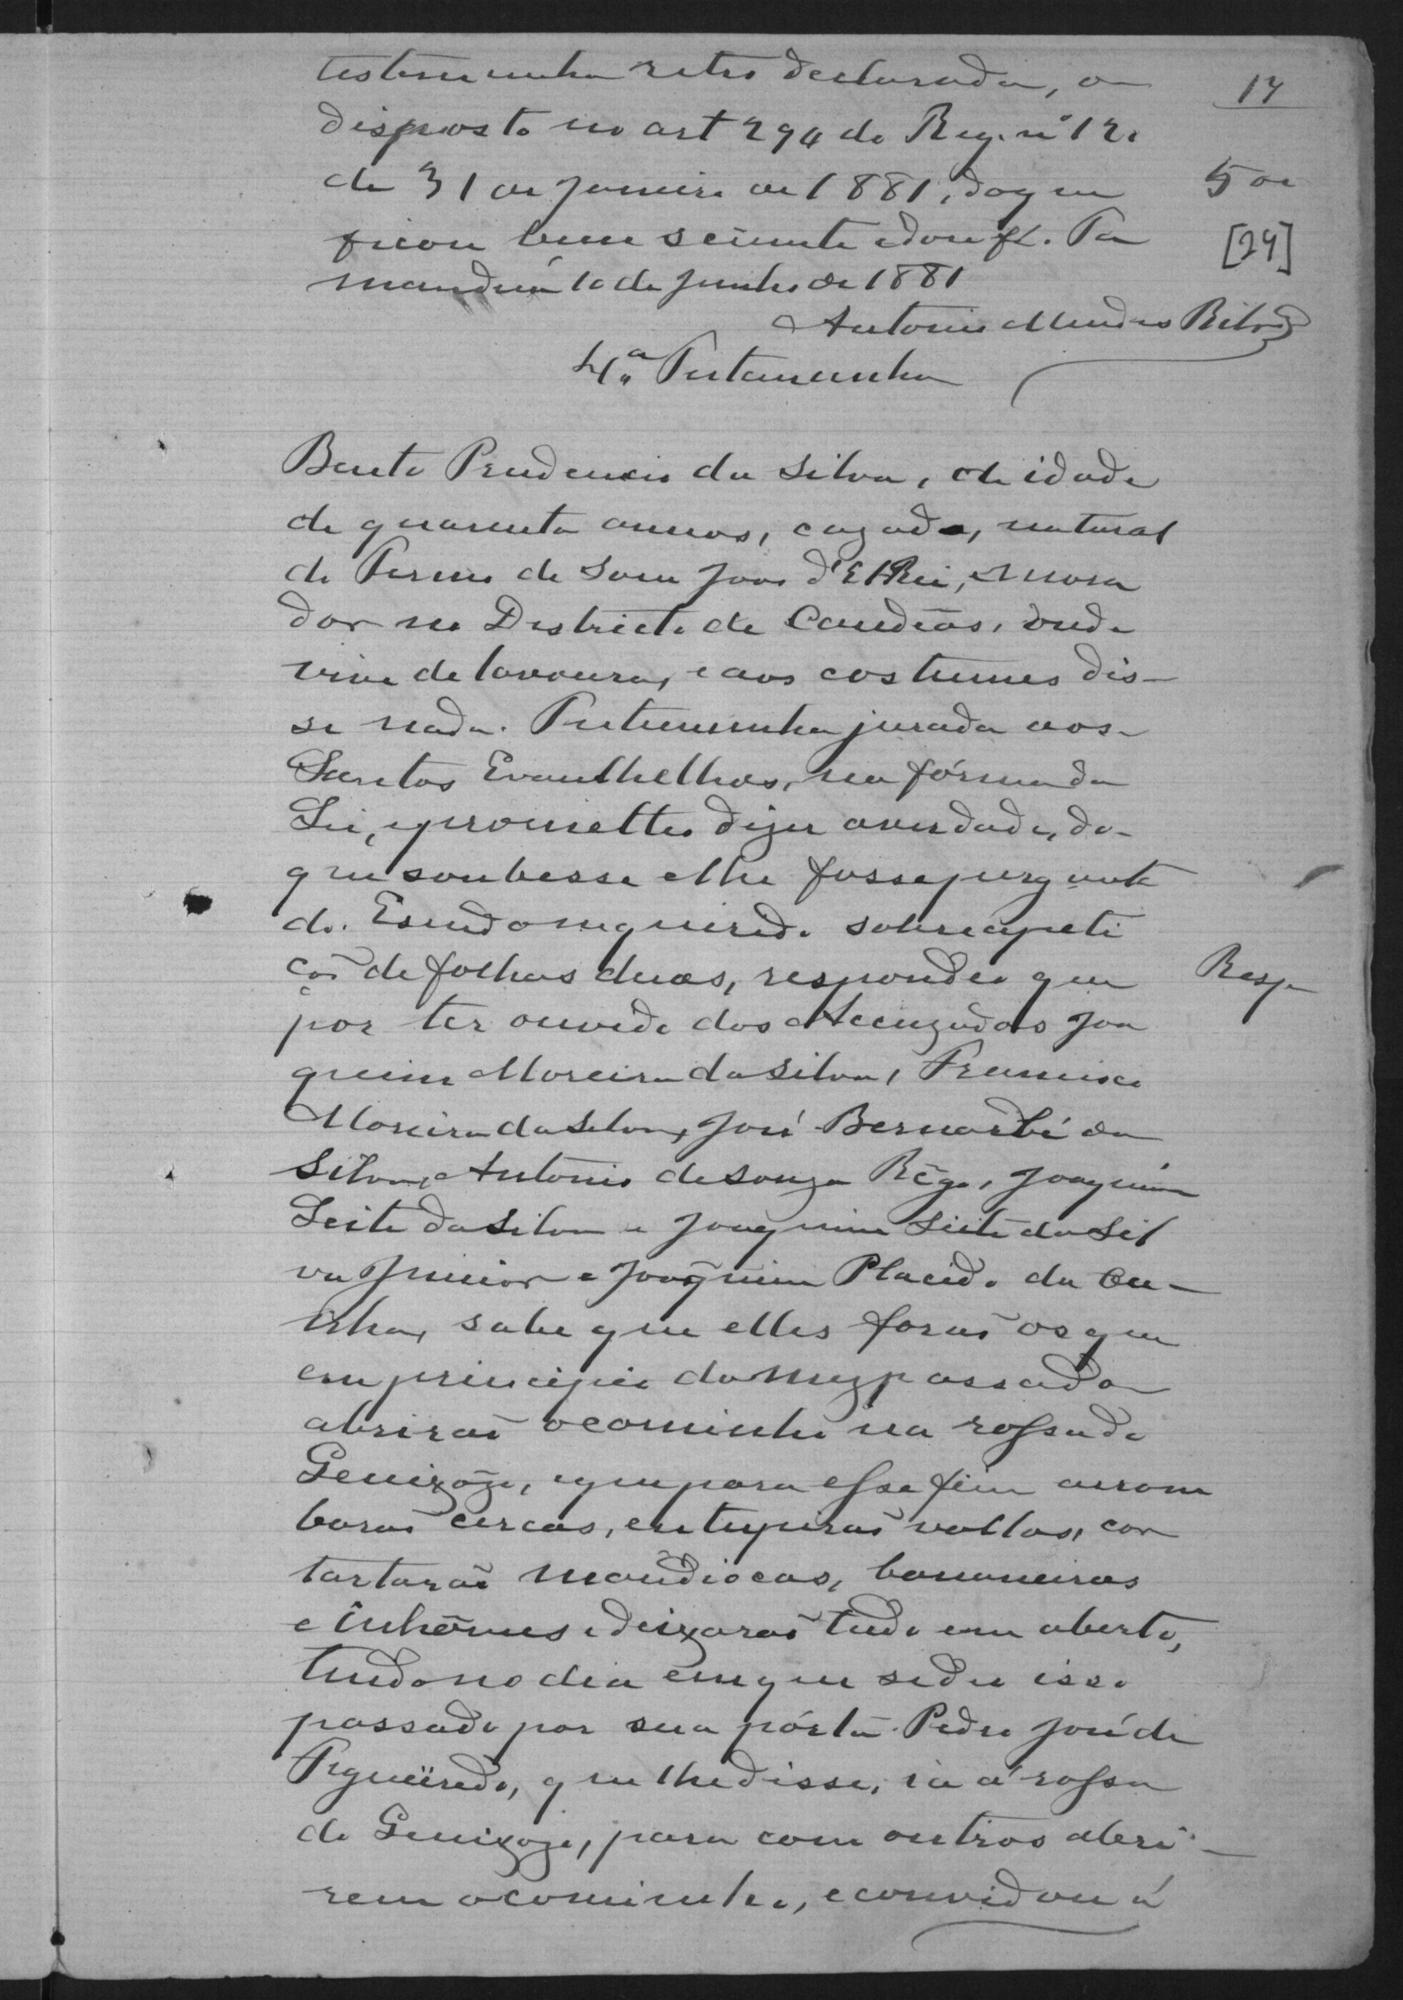 testemunha retro declarada, o
17
disposto no art 294 do Reg. nº 120
de 31 de Janeiro de 1881, do que
500
ficou bem sciente e dou fé. Ta
[24]
manduá 10 de Junho de 1881
Antonio Mendes Ribrº
4.ª Testamunha
Bento Prudencio da Silva, de idade
de quarenta annos, cazado, natural
do Termo de Sam Joao d'El Rei, e mora
dor no Districto de Candêas, onde
vive de lavoura, e aos costumes dis-
se nada. Testemunha jurada aos
Santos Evanlhelhos, na fórma da
Lei, e prometteo dizer a verdade, do
que soubesse e lhe fosse pergunta
do. E sendo inquirido sobre a peti
ção de folhas duas, respondeo que
Resp
por ter ouvido dos Accuzados Joa
quim Moreira da Silva, Francisco
Moreira da Silva, José Bernardi da
Silva, Antonio de Souza Rêgo, Joaquim
Leite da Silva e Joaquim Leite da Sil
va Junior e Joaquim Placido da Cu-
nha, sabe que elles forão os que
em principio do mez passado
abrirão o caminho na rossa de
Genizozo, e que para esse fim arrom
barão cercas, entupirão vallos, cor
tartarão mandiocas, bananeiras
e inhâmes e deixarão tudo em aberto,
tudo no dia em que se deu isso
passado por sua pórta Pedro José de
Figueiredo, que lhe disse, ia á rossa
do Genizozo, para com outros abri-
rem o caminho, e convidou á